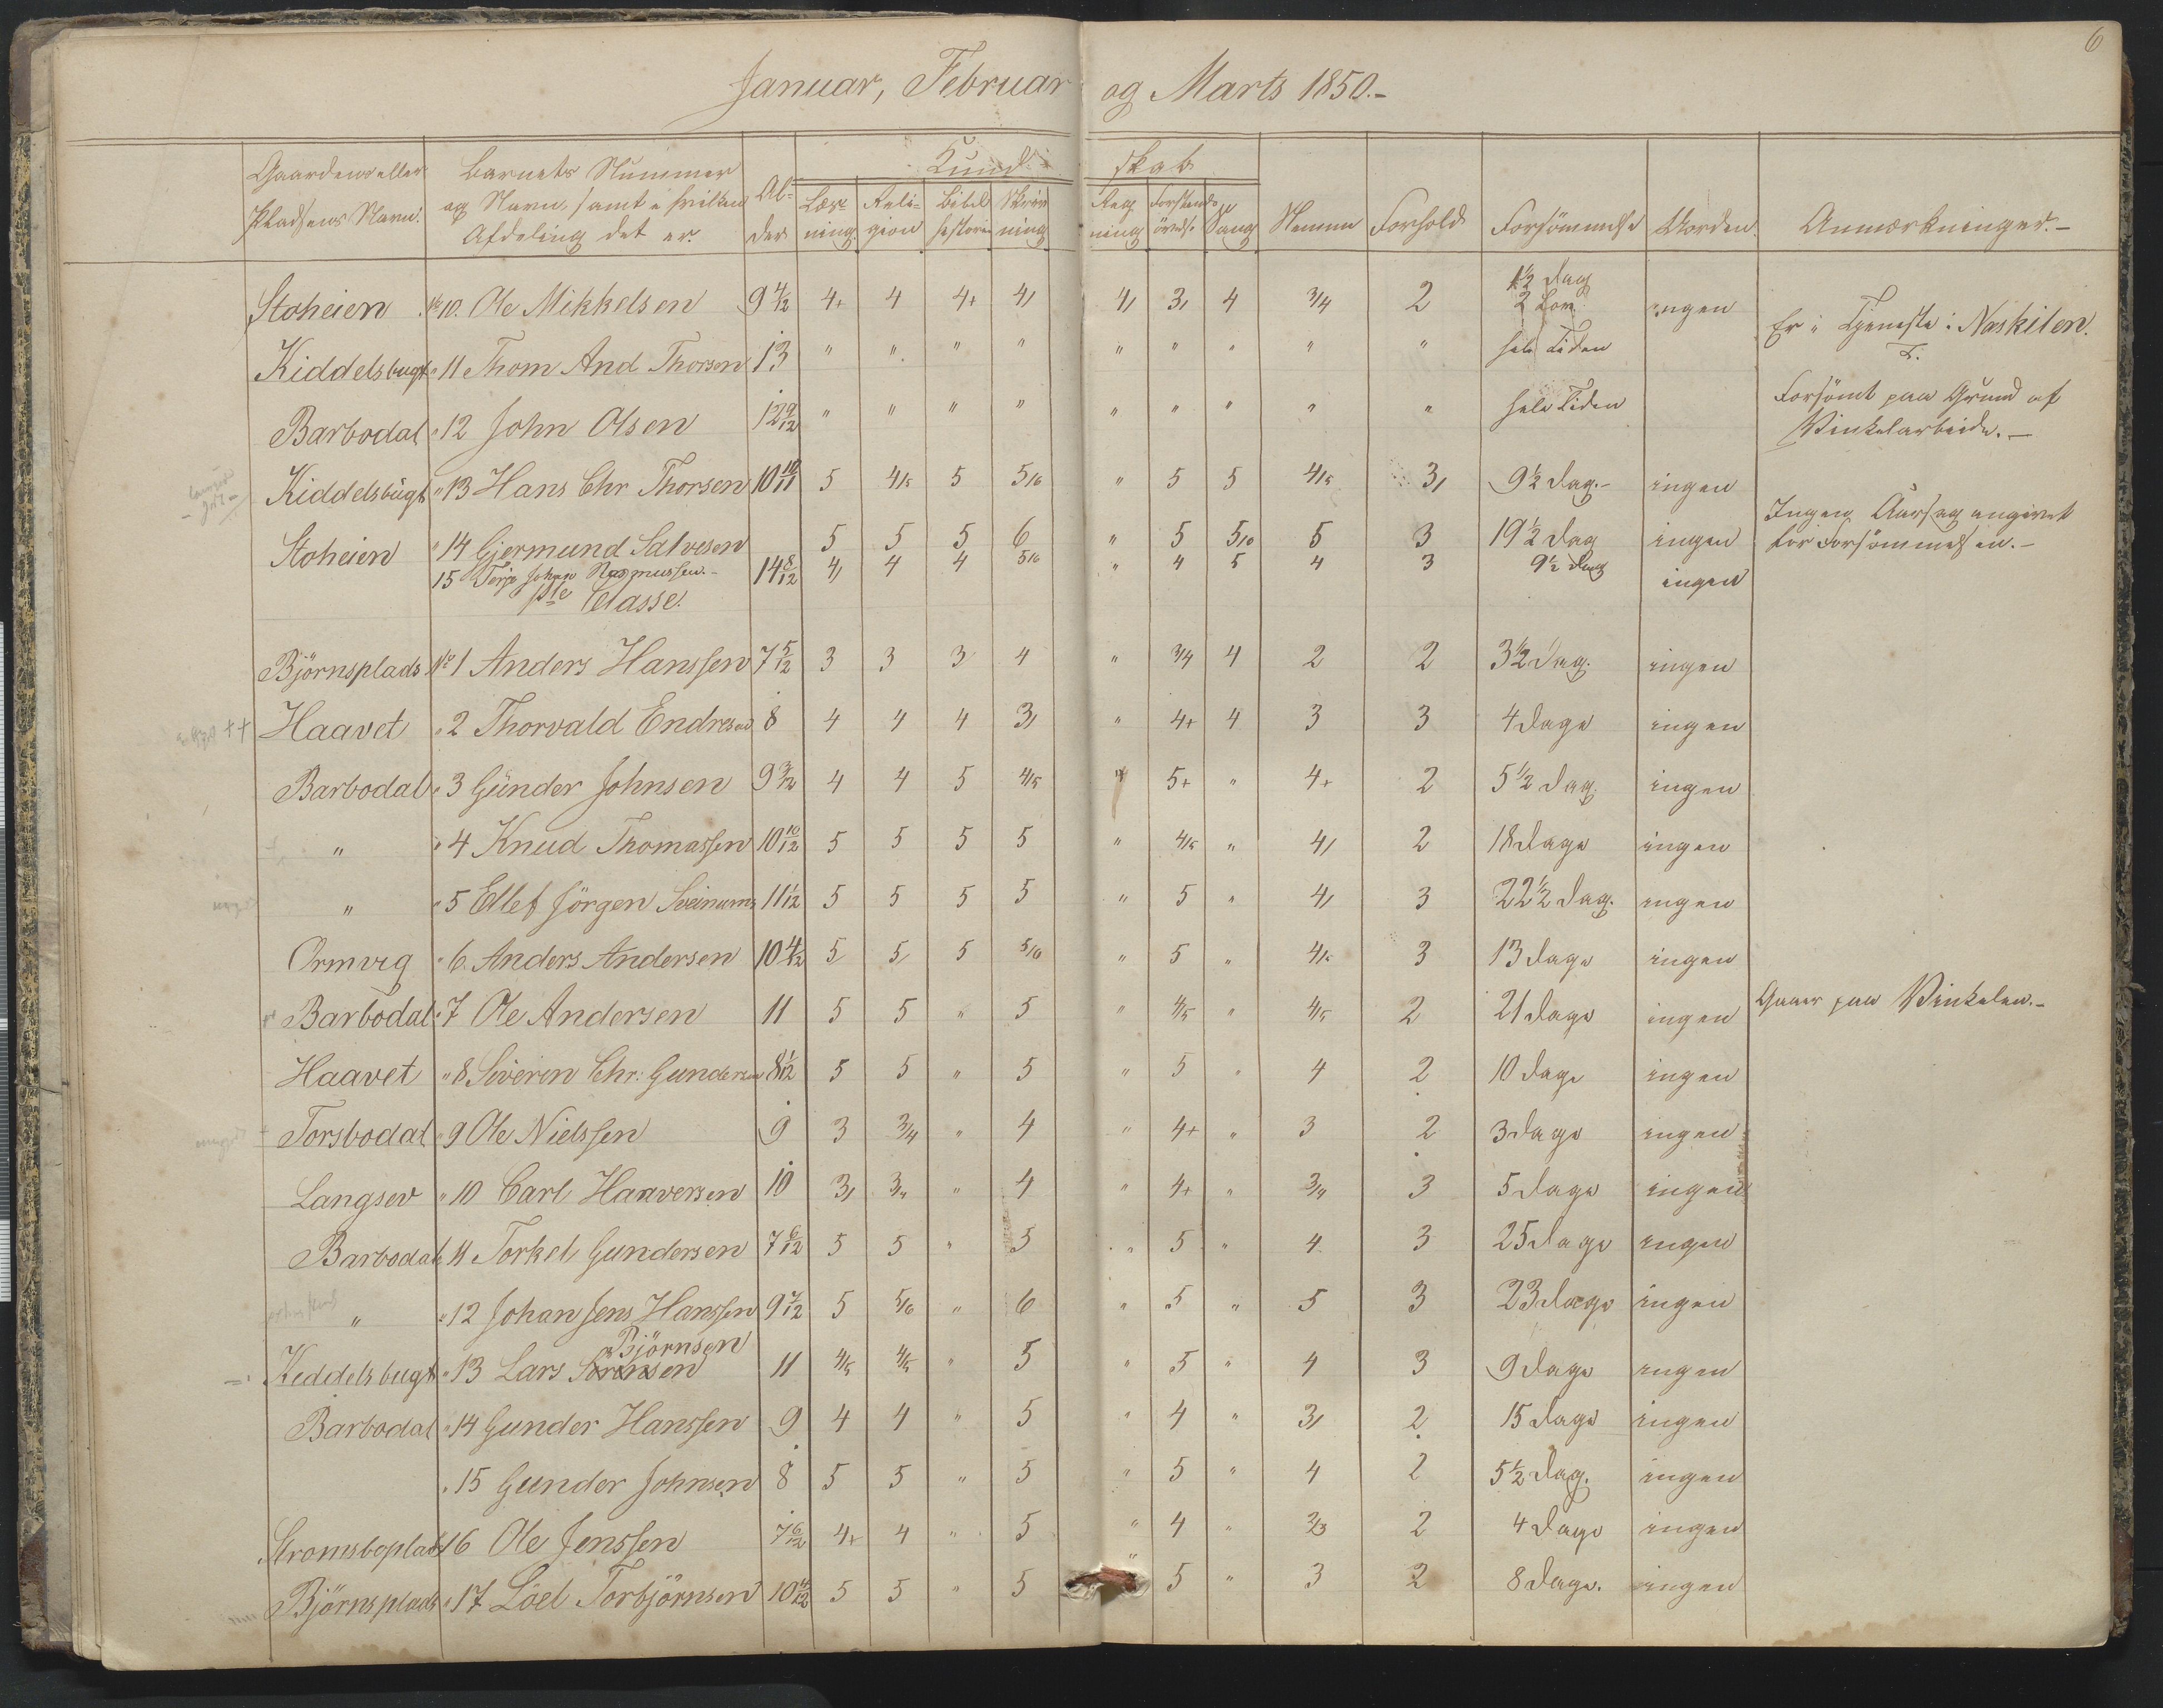 6
Januar, Februar og Marts 1850.-
Gaardens eller Pladsens Navn. Barnets Nummer og Navn, samt i hvilken Afdeling det er. Al- der Kund- skab Læs- ning. Reli- gion Bibel historie Skriv ning Reg ning Forstands övelse Sang Nemme Forhold Forsömmelse Uorden. Anmærkninger.-
Stoheien No 10. Ole Mikkelsen 9 4/12 4+ 4 4+ 4/ 4/ 3/ 4 3/4 2 1½ Dag ingen
Er i Tjeneste i Naskilen.
Kiddelsbugt " 11 Thom And Thorsen 13 " " " " " " " " " hele Tiden
Barbodal " 12 John Olsen 12 9/12 " " " " " " " " " hele Tiden Forsömt paa Grund af
Vinkelarbeide.-
Kiddelsbugt " 13 Hans Chr Thorsen 10 10/11 5 4/5 5 5/6 " 5 5 4/5 3/ 9½ Dag.- ingen
Stoheien " 14 Gjermund Salvesen 5 5 5 6 " 5 5/6 5 3 19½ Dag ingen Ingen Aarsag angivet
for Forsömmelsen.-
15 Terje Johan Rasmussen.- 14 8/12 4/ 4 4 5/6 " 4 5 4 3 9½ Dag ingen
1ste Classe.
Björnsplads No 1 Anders Hanssen 7 5/12 3 3 3 4 " 3/4 4 2 2 3½ Dag. ingen
Haavet " 2 Thorvald Endresen 8 4 4 4 3/ " 4+ 4 3 3 4 Dage ingen
Barbodal " 3 Günder Johnsen 9 3/12 4 4 5 4/5 " 5+ " 4+ 2 5½ Dag. ingen
" " 4 Knud Thomassen 10 10/12 5 5 5 5 " 4/5 " 4/ 2 18 Dage ingen
" " 5 Ellef Jörgen Sveinums 11 1/12 5 5 5 5 " 5 " 4/ 3 22½ Dag. ingen
Ormvig " 6. Anders Andersen 10 4/12 5 5 5 5/6 " 5 " 4/5 3 13 Dage ingen
Barbodal " 7 Ole Andersen 11 5 5 " 5 " 4/5 " 4/5 2 21 Dage ingen Gaaer paa Vinkelen.-
Haavet " 8 Severin Chr: Gundersen 8 1/12 5 5 " 5 " 5 " 4 2 10 Dage ingen
Torsbodal " 9 Ole Nielssen 9 3 3/4 " 4 " 4+ " 3 2 3 Dage ingen
Langsev " 10 Carl Haaversen 10 3/ 3/4 " 4 " 4+ " 3/4 3 5 Dage ingen
Barbodal " 11 Torkel Gundersen 7 6/12 5 5 " 5 " 5 " 4 3 25 Dage ingen
" " 12 Johan Jens Hanssen 9 7/12 5 5/6 " 6 " 5 " 5 3 23 Dage ingen
Björnsen
Keddelsbugt " 13 Lars Sörensen 11 4/5 4/5 " 5 " 5 " 4 3 9 Dage ingen
Barbodal " 14 Gunder Hanssen 9 4 4 " 5 " 4 " 3/ 2 15 Dage ingen
" 15 Gunder Johnsen 8 5 5 " 5 " 5 " 4 2 5½ Dag. ingen
Stromsboplads 16 Ole Jenssen 7 6/12 4+ 4 " 5 " 4 " 2/3 2 4 Dage ingen
Björnsplads " 17 Loel Torbjörnsen 10 4/12 5 5 " 5 " 5 " 3 2 8 Dage. ingen